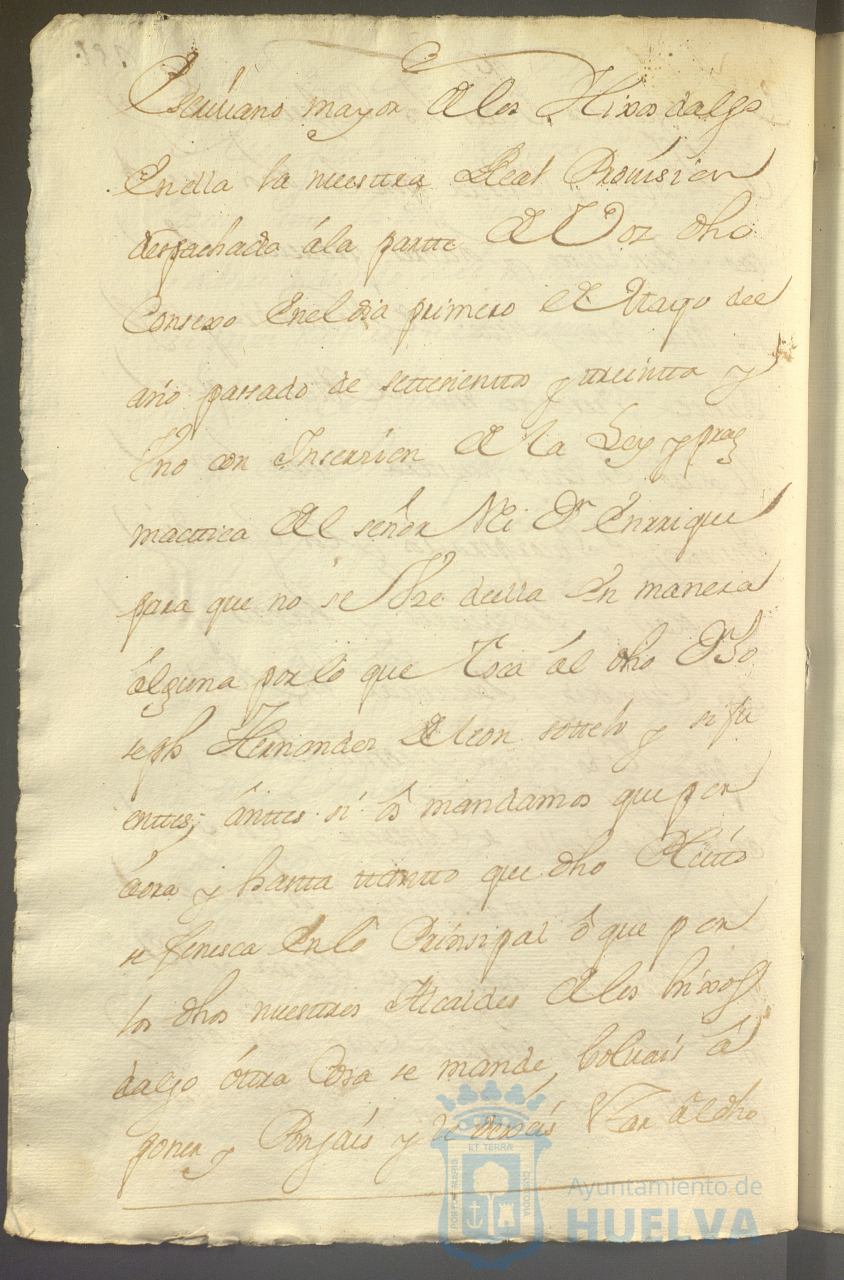 Escriuano mayor de los Hixosdalgo
en ella la nuestra Real Prouision
despachada â la partte de Vos dho
Consexo en el dia primero de Mayo del
año passado de settecienttos y treintta y
Vno con Inserzion de la Ley y prag
mattica del señor Rei Dn Enrrique
para que no se Vze de ella en manera
alguna por lo que toca âl dho Dn Jo
seph Hernandez de leon sottelo y
enttes; ânttes si ôs mandamos que por
âora y hasta ttantto que dho Pleitto
se fenesca en lo Prinsipal ô que por
los dhos nuestros Alcaldes de los hixos
dalgo ôttra Cosa se mande, boluais â
poner y Pongais y le dexeis Vsar âl dho
ET TERRÆ
PORTUS MARIS
CUSTODIA
Ayuntamiento de
HUELVA